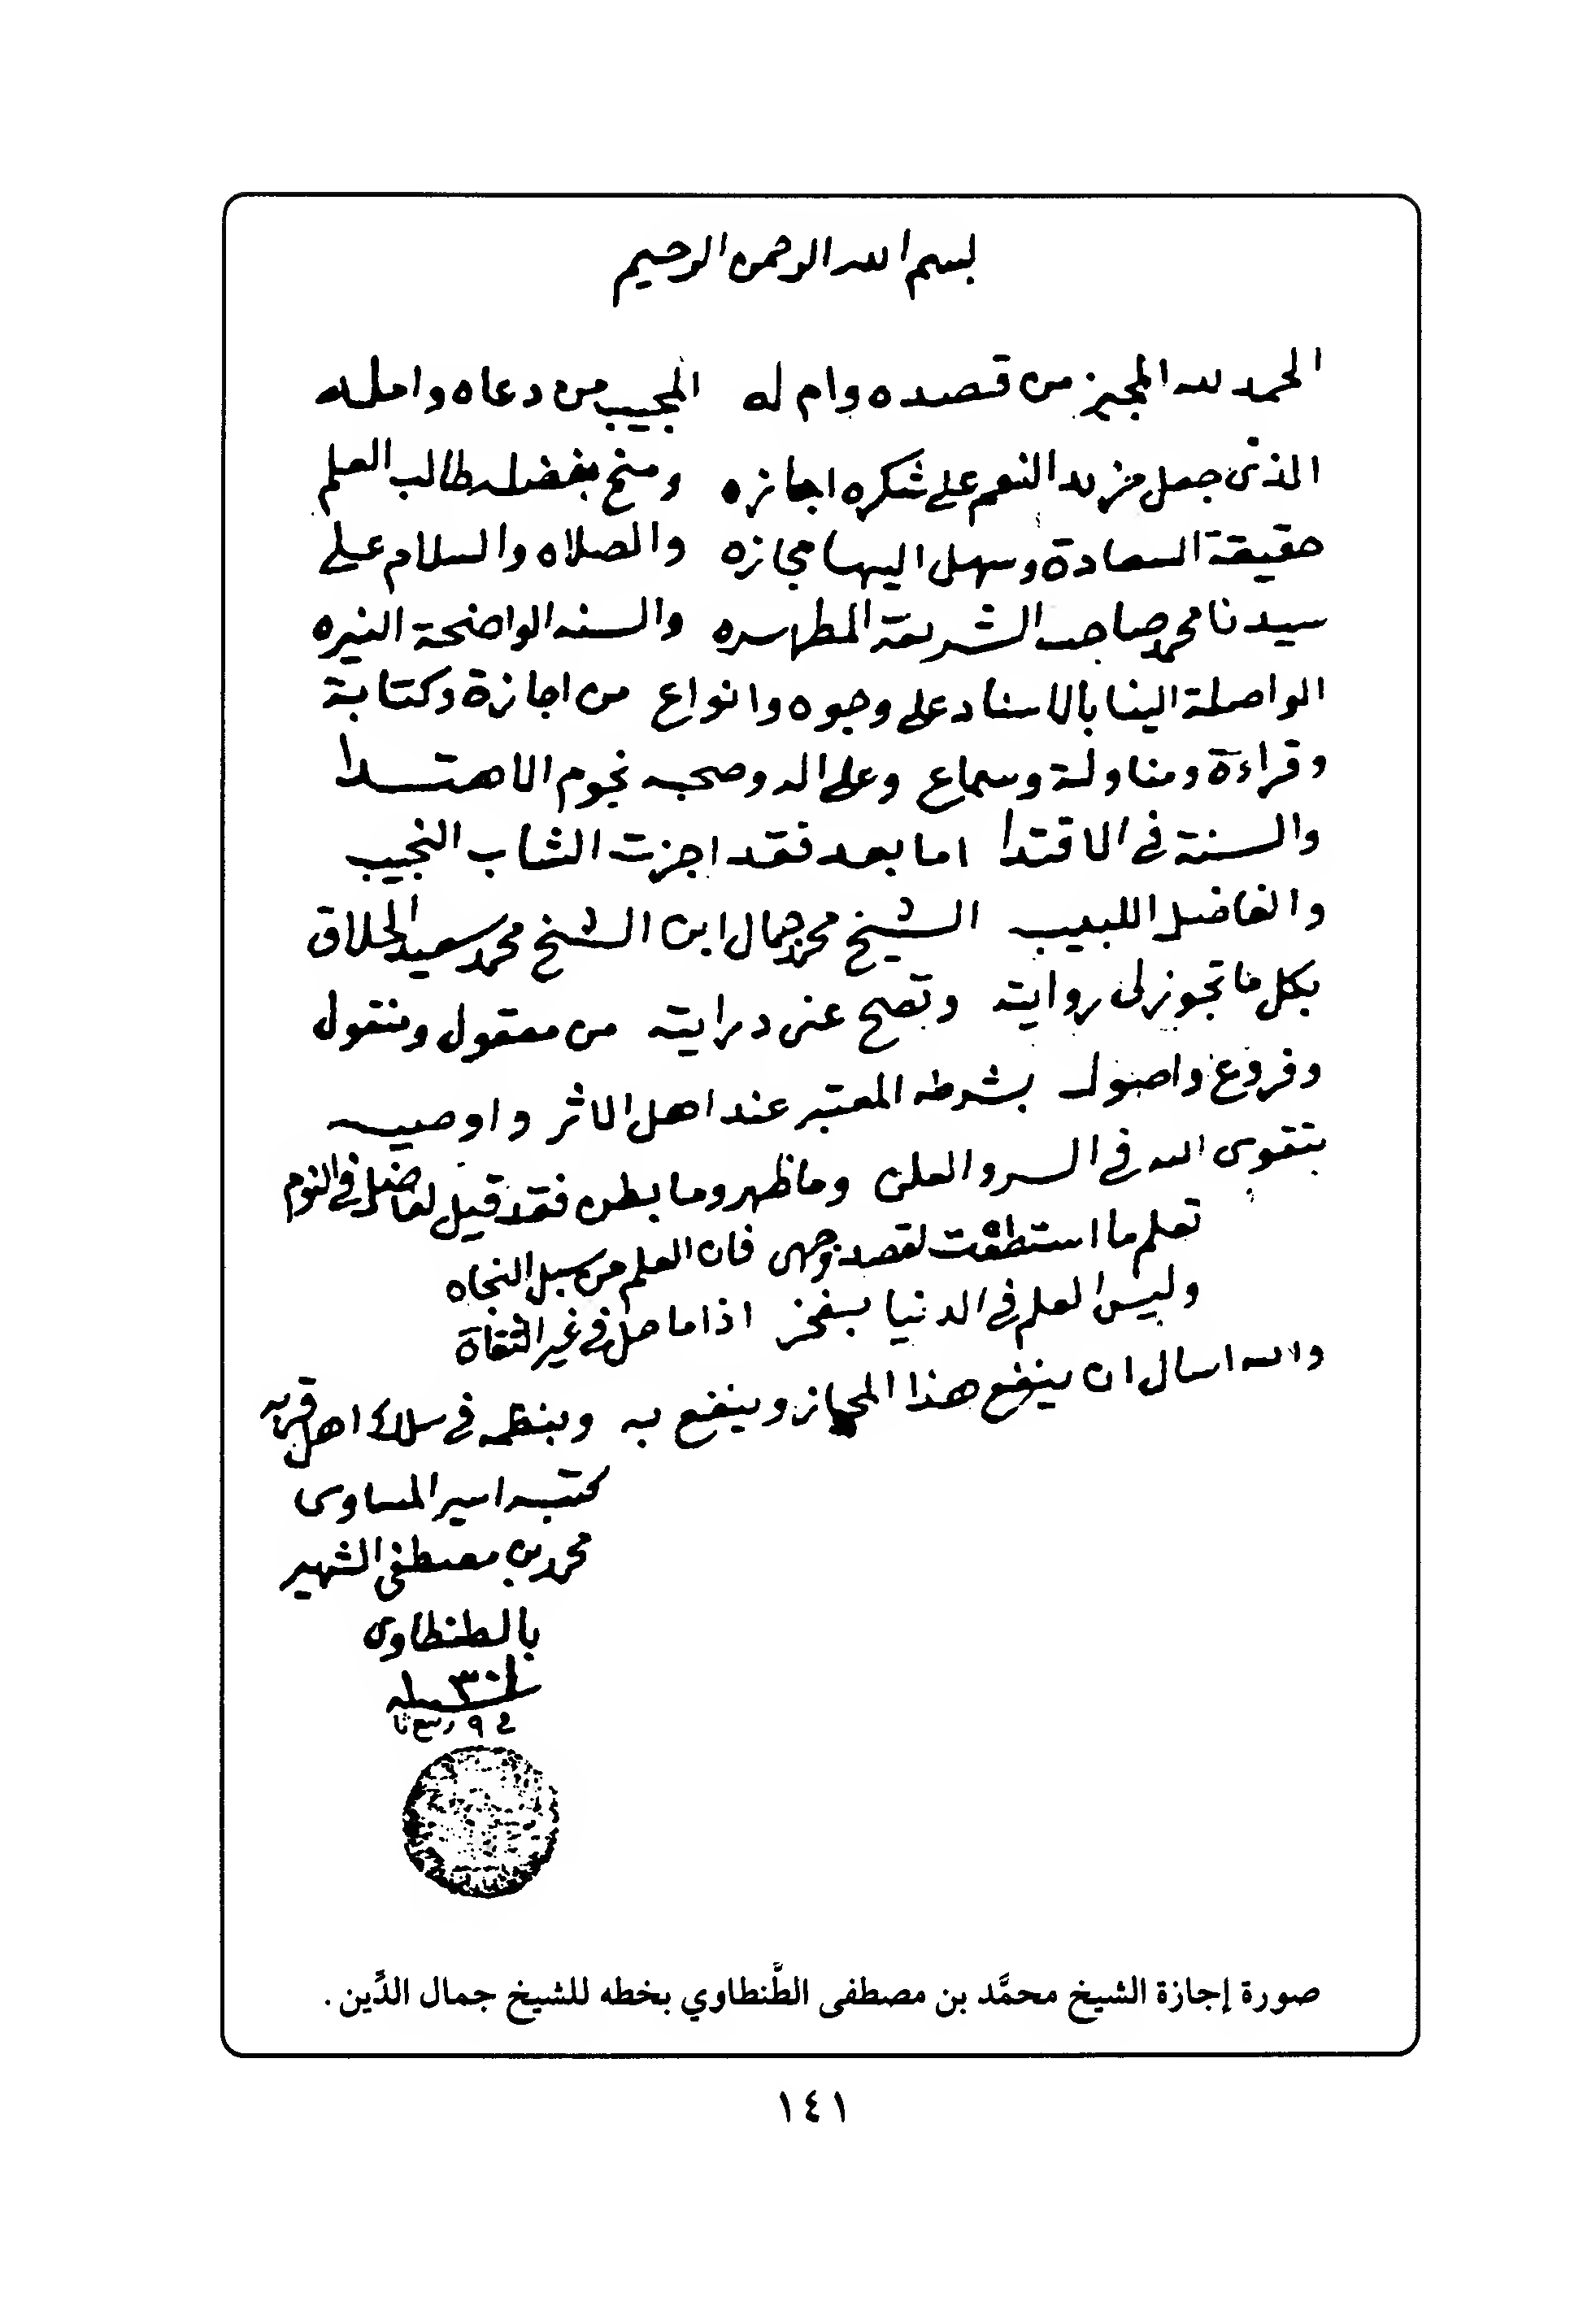 بسم الله الرحمن الرحيم
الحمد لله المجيز من قصده وام له المجيب من دعاه وامله
الذي جعل مزيد النعم على شكره اجازه ومنح بفضله طالب العلم
حقيقة السعادة وسهل اليها مجازه والصلاه والسلام على
سيدنا محمد صاحب الشريعة المطهره والسنه الواضحة النيره
الواصلة الينا بالاسناد على وجوه وانواع من اجازة وكتابة
وقراءة ومناولة وسماع وعلى اله وصحبه نجوم الاهتدا
والسنة في الاقتدا اما بعد فقد اجزت الشاب النجيب
والفاضل اللبيب الشيخ محمد جمال ابن الشيخ محمد سعيد الحلاق
بكل ما تجوز لى روايته وتصح عنى درايته من معقول ومنقول
وفروع واصول بشرطه المعتبر عند اهل الاثر واوصيه
بتقوى الله في السر والعلن وما ظهر وما بطن فقد قيل لفاضل في النوم
تعلم ما استطعت لقصد وجهى فان العلم من سبل النجاه
وليس العلم في الدنيا بفخر اذا ما حل في غير الثقاة
والله اسال ان ينفع هذا المجاز وينفع به وينظمه في سلك اهل قربه
كتبه اسير المساوى
محمد بن مصطفى الشهير
بالطنطاوى
في ٩ ربيع ثا
صورة إجازة الشيخ محمَّد بن مصطفى الطَّنطاوي بخطه للشيخ جمال الدِّين .
١٤١